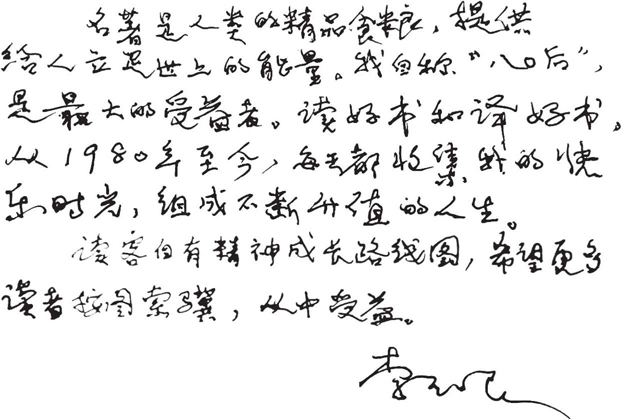 名著是人类的精品食粮，提供
给人立足世上的能量。我自称“八0后”，
是最大的受益者。读好书和译好书，
从1980年至今，每天都收集我的快
乐时光，组成不断升值的人生。
读客自有精神成长路线图，希望更多
读者按图索骥，从中受益。